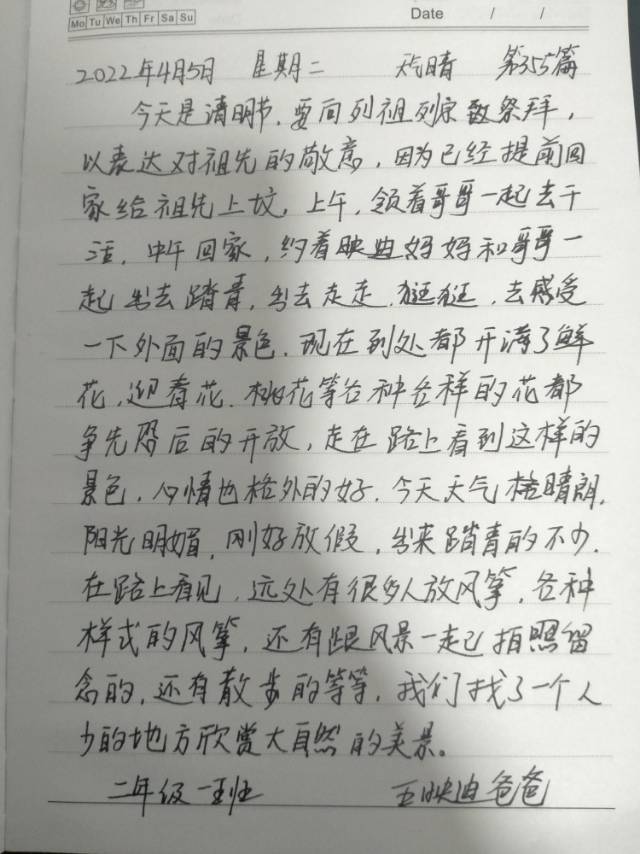 Mo Tu We Th Fr Sa Su
Date / /
2022年4月5日 星期二 天气晴 第355篇
今天是清明节，要向列祖列宗祭拜，
以表达对祖先的敬意，因为已经提前回
家给祖先上坟，上午，领着哥哥一起去干
活，中午回家，约着映迪妈妈和哥哥一
起出去踏青，出去走走，逛逛，去感受
一下外面的景色，现在到处都开满了鲜
花，迎春花，桃花等各种各样的花都
争先恐后的开放，走在路上看到这样的
景色，心情也格外的好，今天天气晴朗，
阳光明媚，刚好放假，出来踏青的不少，
在路上看见，远处有很多人放风筝，各种
样式的风筝，还有跟风景一起拍照留
念的，还有散步的等等，我们找了一个人
少的地方欣赏大自然的美景。
二年级一班 王映迪爸爸